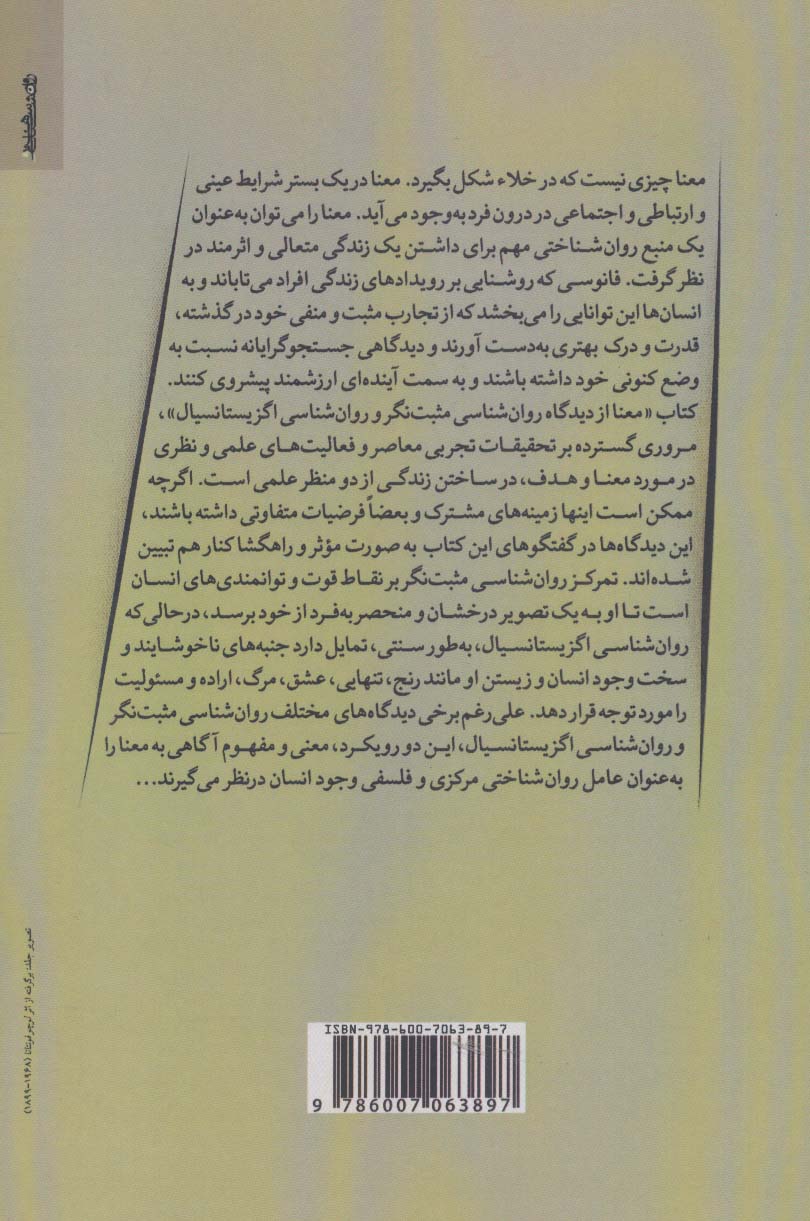 معنا چیزی نیست که در خلاء شکل بگیرد. معنا در یک بستر شرایط عینی
و ارتباطی و اجتماعی در درون فرد به‌وجود می‌آید. معنا را می‌توان به‌عنوان
یک منبع روان‌شناختی مهم برای داشتن یک زندگی متعالی و اثرمند در
نظر گرفت. فانوسی که روشنایی بر رویدادهای زندگی افراد می‌تاباند و به
انسان‌ها این توانایی را می‌بخشد که از تجارب مثبت و منفی خود در گذشته،
قدرت و درک بهتری به‌دست آورند و دیدگاهی جستجوگرایانه نسبت به
وضع کنونی خود داشته باشند و به سمت آینده‌ای ارزشمند پیشروی کنند.
کتاب «معنا از دیدگاه روان‌شناسی مثبت‌نگر و روان‌شناسی اگزیستانسیال»،
مروری گسترده بر تحقیقات تجربی معاصر و فعالیت‌های علمی و نظری
در مورد معنا و هدف، در ساختن زندگی از دو منظر علمی است. اگرچه
ممکن است اینها زمینه‌های مشترک و بعضاً فرضیات متفاوتی داشته باشند،
این دیدگاه‌ها در گفتگوهای این کتاب به صورت مؤثر و راهگشا کنار هم تبیین
شده‌اند. تمرکز روان‌شناسی مثبت‌نگر بر نقاط قوت و توانمندی‌های انسان
است تا او به یک تصویر درخشان و منحصر به‌فرد از خود برسد، درحالی‌که
روان‌شناسی اگزیستانسیال، به‌طور سنتی، تمایل دارد جنبه‌های ناخوشایند و
سخت وجود انسان و زیستن او مانند رنج، تنهایی، عشق، مرگ، اراده و مسئولیت
را مورد توجه قرار دهد. علی‌رغم برخی دیدگاه‌های مختلف روان‌شناسی مثبت‌نگر
و روان‌شناسی اگزیستانسیال، این دو رویکرد، معنی و مفهوم آگاهی به معنا را
به‌عنوان عامل روان‌شناختی مرکزی و فلسفی وجود انسان درنظر می‌گیرند...
تصویر جلد: برگرفته از اثر لوچو فونتانا (۱۹۶۸-۱۸۹۹)
ISBN-978-600-7063-89-7
9 786007 063897